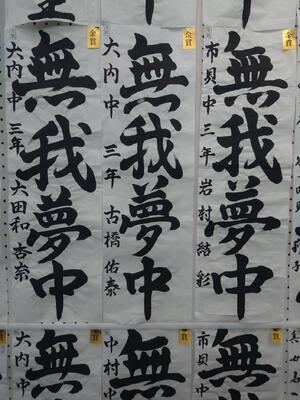 金賞
無我夢中
市貝中 三年 岩村結彩
金賞
無我夢中
大内中 三年 古橋佑泰
金賞
無我夢中
大内中 三年 大田和杏奈
無
市貝中
無
中村中
無
大内中